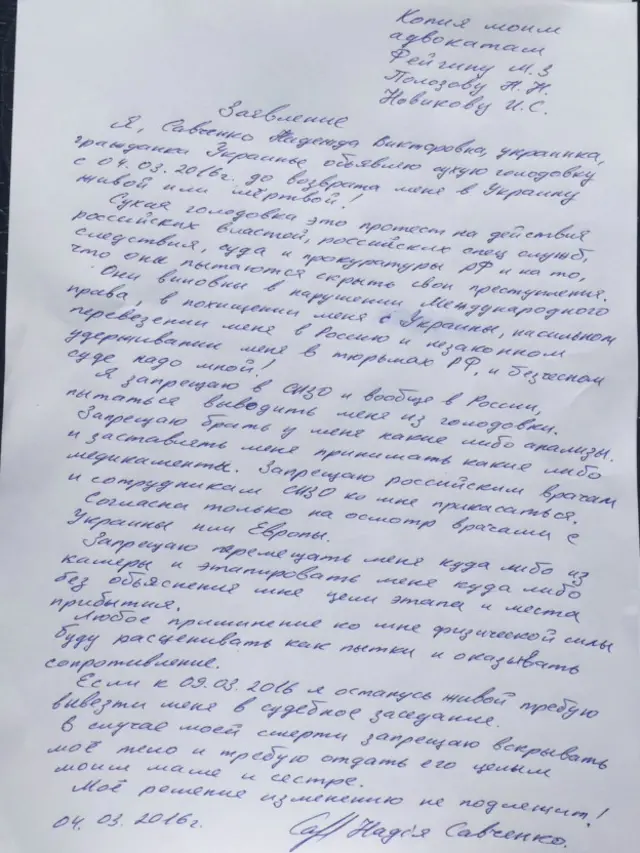 Копия моим
адвокатам
Фейгину М.З
Полозову Н.Н.
Новикову И.С.
Заявление
Я, Савченко Надежда Викторовна, украинка,
гражданка Украины объявляю сухую голодовку
с 04.03.2016г. до возврата меня в Украину
живой или мёртвой!
Сухая голодовка это протест на действия
российских властей, российских спец служб,
следствия, суда и прокуратуры РФ и на то,
что они пытаются скрыть свои преступления.
Они виновны в нарушении Международного
права, в похищении меня с Украины, насильном
перевезении меня в Россию и незаконном
удерживании меня в тюрьмах РФ, и безчесном
суде надо мной!
Я запрещаю в СИЗО и вообще в России,
пытаться выводить меня из голодовки.
Запрещаю брать у меня какие либо анализы
и заставлять меня принимать какие либо
медикаменты. Запрещаю российским врачам
и сотрудникам СИЗО ко мне прикасаться.
Согласна только на осмотр врачами с
Украины или Европы.
Запрещаю перемещать меня куда либо из
камеры и этапировать меня куда либо
без объяснения мне цели этапа и места
прибытия.
Любое применение ко мне физической силы
буду расценивать как пытки и оказывать
сопротивление.
Если к 09.03.2016 я останусь живой требую
вывезти меня в судебное заседание.
В случае моей смерти запрещаю вскрывать
моё тело и требую отдать его целым
моим маме и сестре.
Моё решение изменению не подлежит!
04.03.2016г.
Надія Савченко.